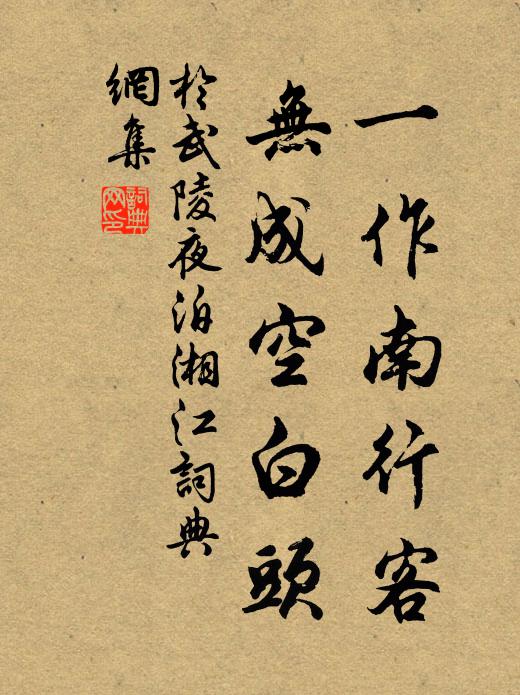 一作南行客
無成空白頭
於武陵夜泊湘江詞典
網集
詞典
网印